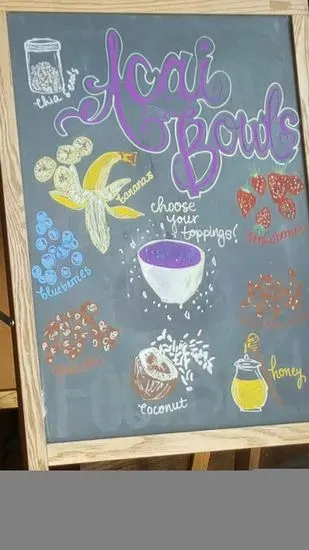 Acai
Bowls
chia seeds
bananas
choose
your
toppings!
strawberries
blueberries
coconut
honey